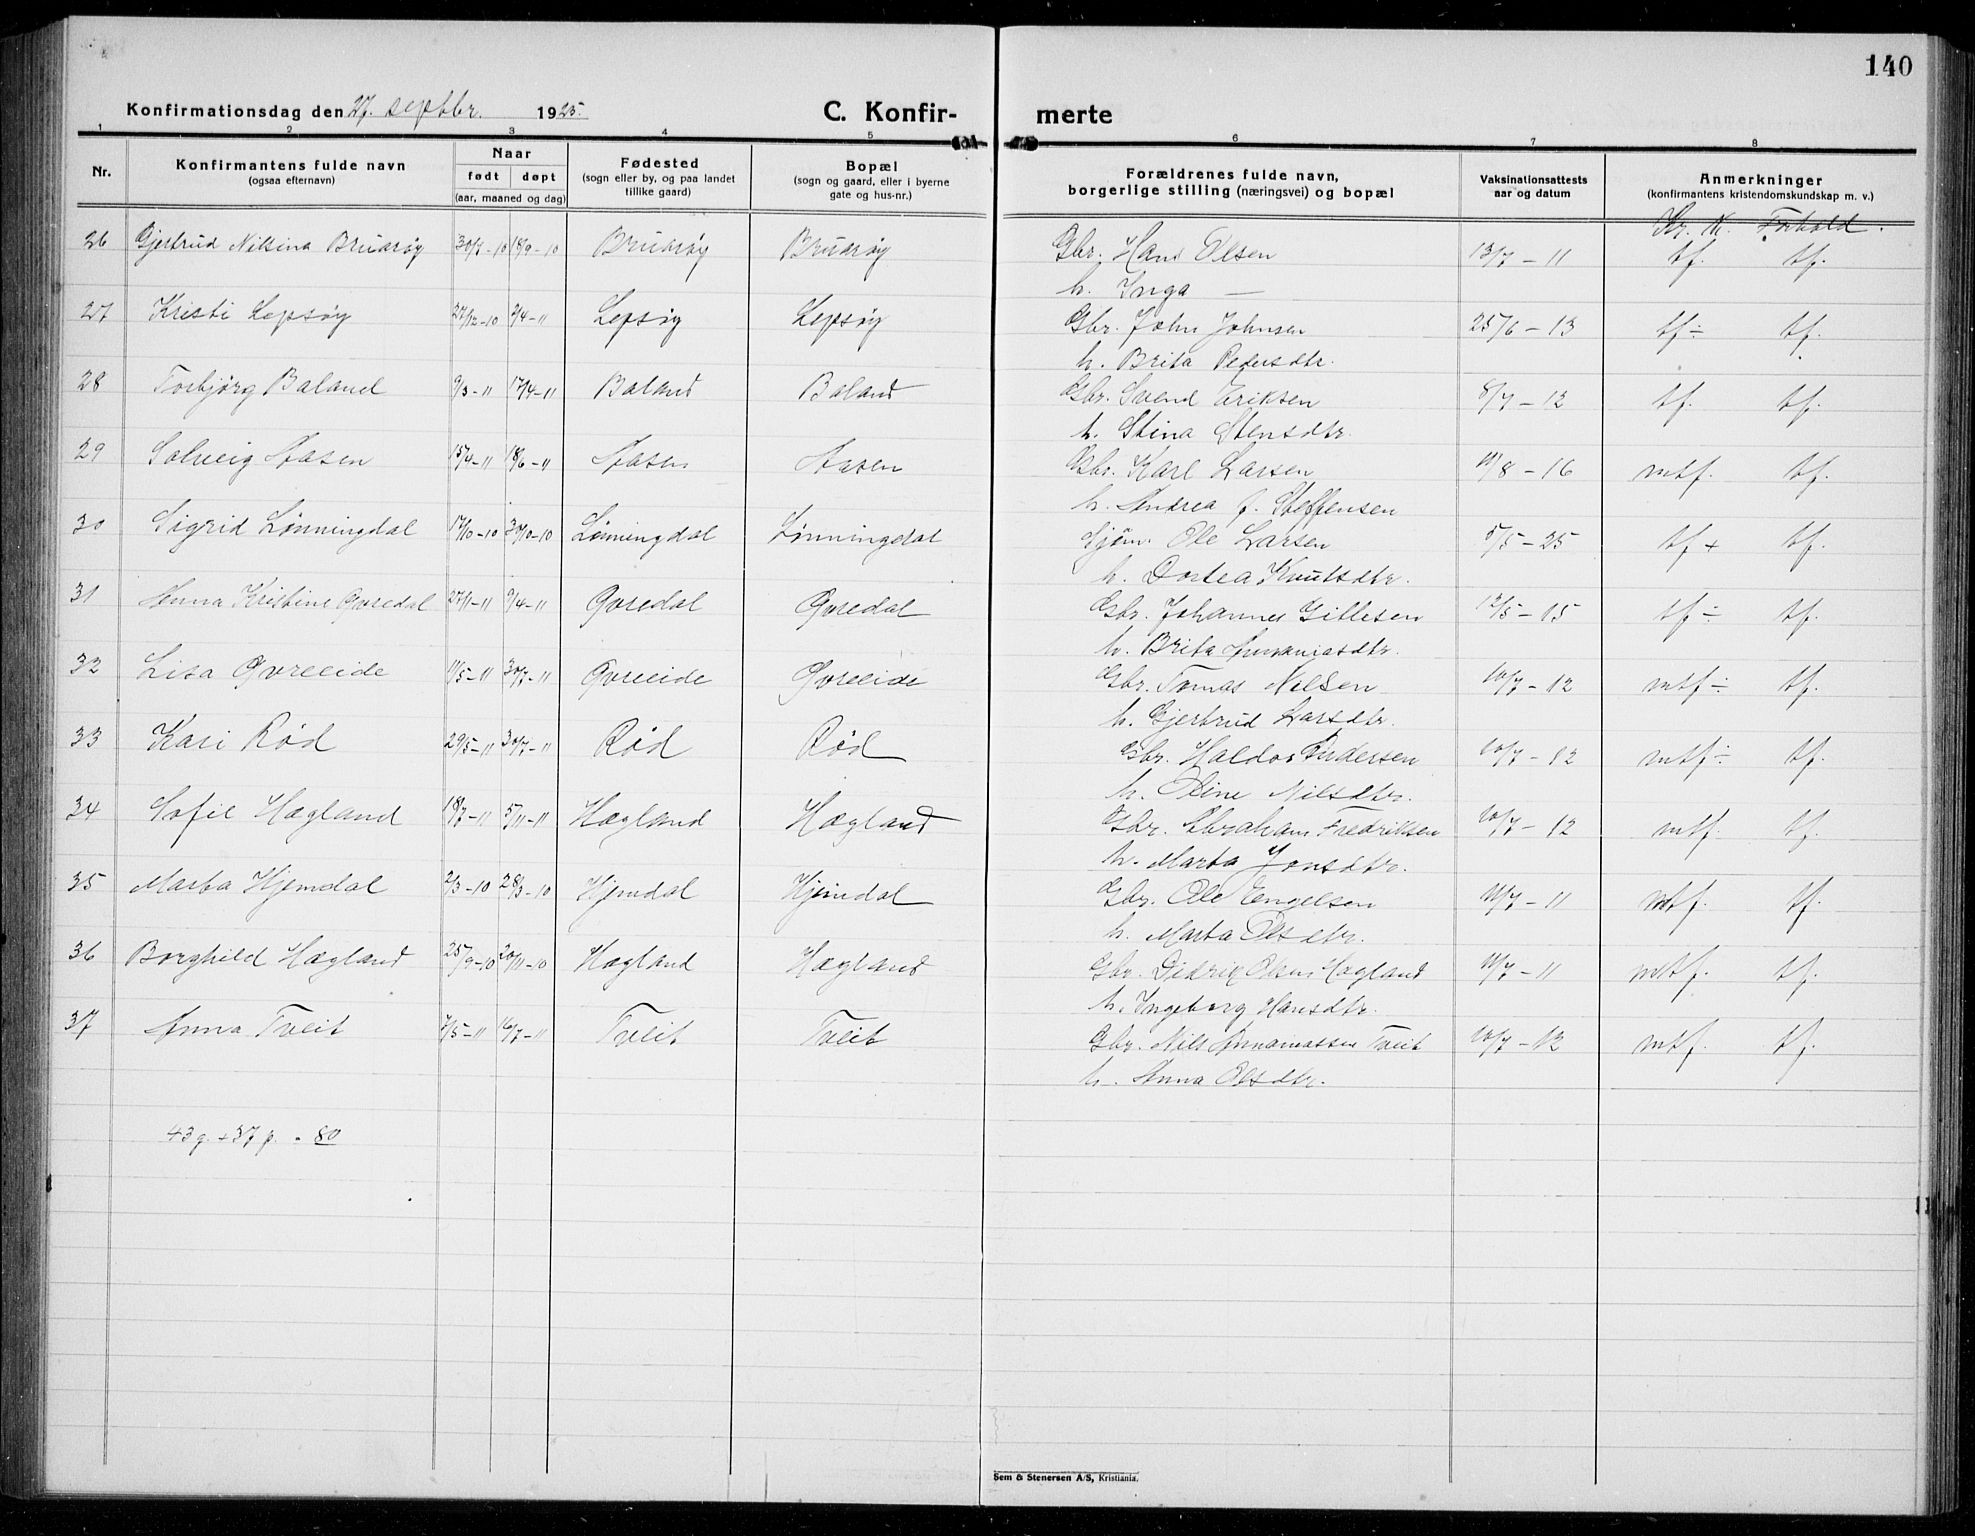 140
Konfirmationsdag den 27. septbr. 1925.
C. Konfir-
merte
1 2 3 4 5 6 7 8
Nr.
Konfirmantens fulde navn
(ogsaa efternavn)
Naar
født døpt
(aar, maaned og dag)
Fødested
(sogn eller by, og paa landet
tillike gaard)
Bopæl
(sogn og gaard, eller i byerne
gate og hus-nr.)
Forældrenes fulde navn,
borgerlige stilling (næringsvei) og bopæl
Vaksinationsattests
aar og datum
Anmerkninger
(konfirmantens kristendomskundskap m. v.)
Kr. K. Forhold.
26 Gjertrud Nilsina Bruarøy 18/9-10 Bruarøy Bruarøy Gbr. Hans Olsen 13/7-11 tf. tf.
h. Inga —
27 Kristi Lepsøy 27/12-10 Lepsøy Lepsøy Gbr. John Johnsen 25/6-13 tf÷ tf.
h. Brita Pedersdtr.
28 Torbjørg Baland 9/3-11 17/4-11 Baland Baland Gbr. Svend Eriksen 8/7-12 tf. tf.
h. Stina Stensdtr.
29 Solveig Aasen 15/4-11 18/6-11 Aasen Aasen Gbr. Karl Larsen 11/8-16 mtf. tf.
h. Andrea f. Steffensen
30 Sigrid Lønningdal 17/10-10 30/10-10 Lønningdal Lønningdal Sjøm. Ole Larsen 5/5-25 tf+ tf.
h. Dortea Knutsdtr.
31 Anna Kristine Øvredal 9/4-11 Øvredal Øvredal Gbr. Johannes Gillesen 12/5-15 tf÷ tf.
h. Brita Ananiasdtr.
32 Lisa Øvreeide 11/5-11 30/7-11 Øvreeide Øvreeide Gbr. Tomas Nilsen 10/7-12 mtf÷ tf.
h. Gjertrud Larsdtr.
33 Kari Rød 29/5-11 30/7-11 Rød Rød Gbr. Haldor Andersen 10/7-12 mtf÷ tf.
h. Oline Nilsdtr.
34 Sofie Hægland 18/7-11 5/11-11 Hægland Hægland Gbr. Abraham Fredriksen 10/7-12 mtf. tf.
h. Marta Jonsdtr.
35 Marta Hjemdal 2/3-10 28/3-10 Hjemdal Hjemdal Gbr. Ole Engelsen 11/7-11 mtf. tf.
h. Marta Olsdtr.
36 Borghild Hægland 25/9-10 20/11-10 Hægland Hægland Gbr. Didrik Olsen Hægland 11/7-11 mtf. tf.
h. Ingeborg Hansdtr.
37 Anna Tveit 7/5-11 16/7-11 Tveit Tveit Gbr. Nils Ananiassen Tveit 10/7-12 mtf. tf.
h. Anna Olsdtr.
43 g. + 37 p. = 80
Sem & Stenersen A/S, Kristiania.